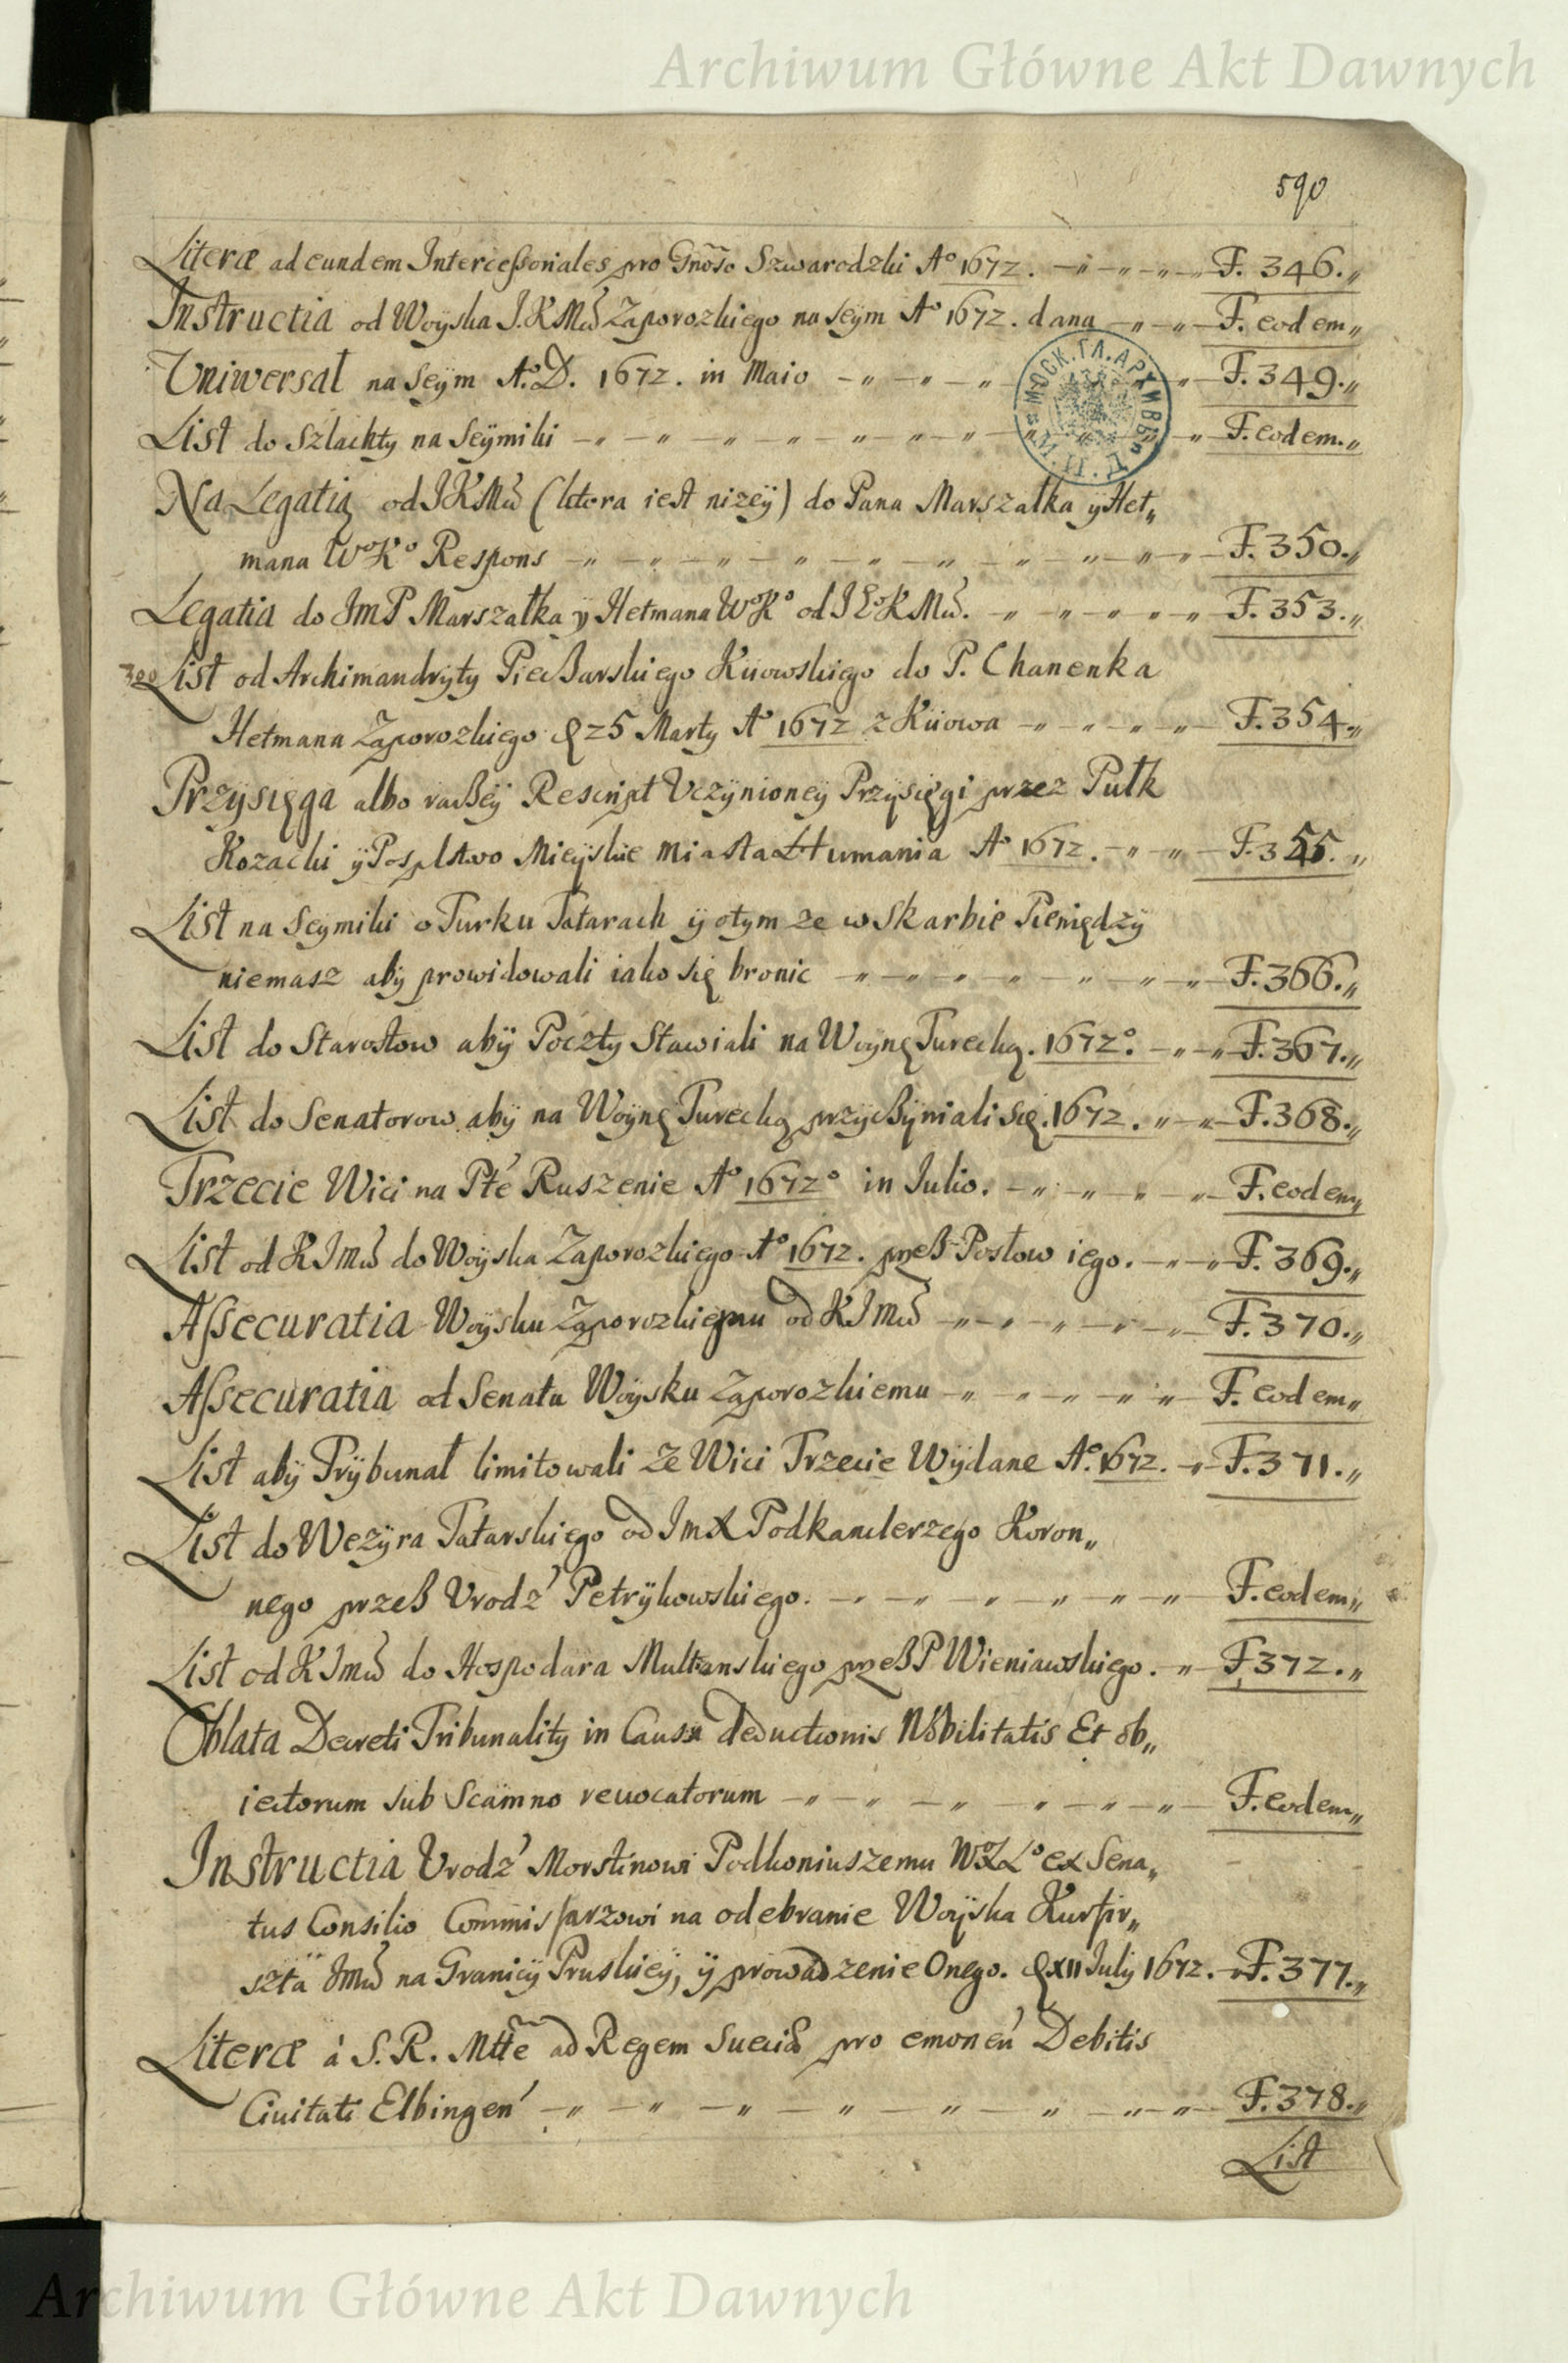 Archiwum Główne Akt Dawnych
590
Literæ ad eundem Intercessoriales pro Gnõso Szwarodzki Aº 1672. F. 346.
Instructia od Woÿska J.K.Mći Zaporozkiego na Seÿm Aº 1672. dana F. eodem
Uniwersał na Seÿm A.D. 1672. in Maio F. 349.
List do Szlachty na Seÿmiki F. eodem.
Na Legatią od JKMći (ktora iest niżeÿ) do Pana Marszałka y Het„
mana WºKº Respons F. 350.
Legatia do JmP Marszałka y Hetmana WºKº od JEºKMći. F. 353.
300 List od Archimandryty Pieczarskiego Kiiowskiego do P. Chanenka
Hetmana Zaporozkiego 25 Marty Aº 1672 z Kiiowa F. 354
Przysięga albo raczeÿ Rescript Uczÿnioneÿ Przysięgi przez Pułk
Kozacki ÿ Pospolstwo Mieÿskie Miasta Humania Aº 1672. F. 355.
List na Seymiki o Turku Tatarach ÿ otym ze w Skarbie Pieniędzÿ
niemasz abÿ prowidowali iako się bronic F. 366.
List do Starostow abÿ Poczty Stawiali na Woynę Turecką. 1672º. F. 367.
List do Senatorow abÿ na Woÿnę Turecką przyczÿniali się. 1672. F. 368.
Trzecie Wici na Płe Ruszenie Aº 1672º in Julio. F. eodem
List od KJmći do Woÿska Zaporozkiego Aº 1672. przeß Posłow iego. F. 369.
Assecuratia Woÿsku Zaporozkiemu od KJmći F. 370.
Assecuratia od Senatu Woÿsku Zaporozkiemu F. eodem
List abÿ Trÿbunał limitowali Ze Wici Trzecie Wÿdane Aº. 1672. F. 371.
List do Wezÿra Tatarskiego od JmX Podkanclerzego Koron„
nego przeß Urodz' Petrÿkowskiego. F. eodem
List od KJmći do Hospodara Multanskiego przeß P Wieniawskiego. F. 372.
Oblata Decreti Tribunality in Causa deductionis Nobilitatis Et ob„
iectorum sub Scamno reuocatorum F. eodem
Instructia Urodz' Morstinowi Podkoniuszemu WºXLº ex Sena„
tus Consilio Commissarzowi na odebranie Woÿska Kurfir„
szta Jmći na Granicÿ Pruskieÿ, ÿ prowadzenie Onego. XII Julÿ 1672. F. 377.
Literæ á S.R. Mtte ad Regem Sueciæ pro emonen' Debitis
Ciuitati Elbingen' F. 378.
List
Archiwum Główne Akt Dawnych